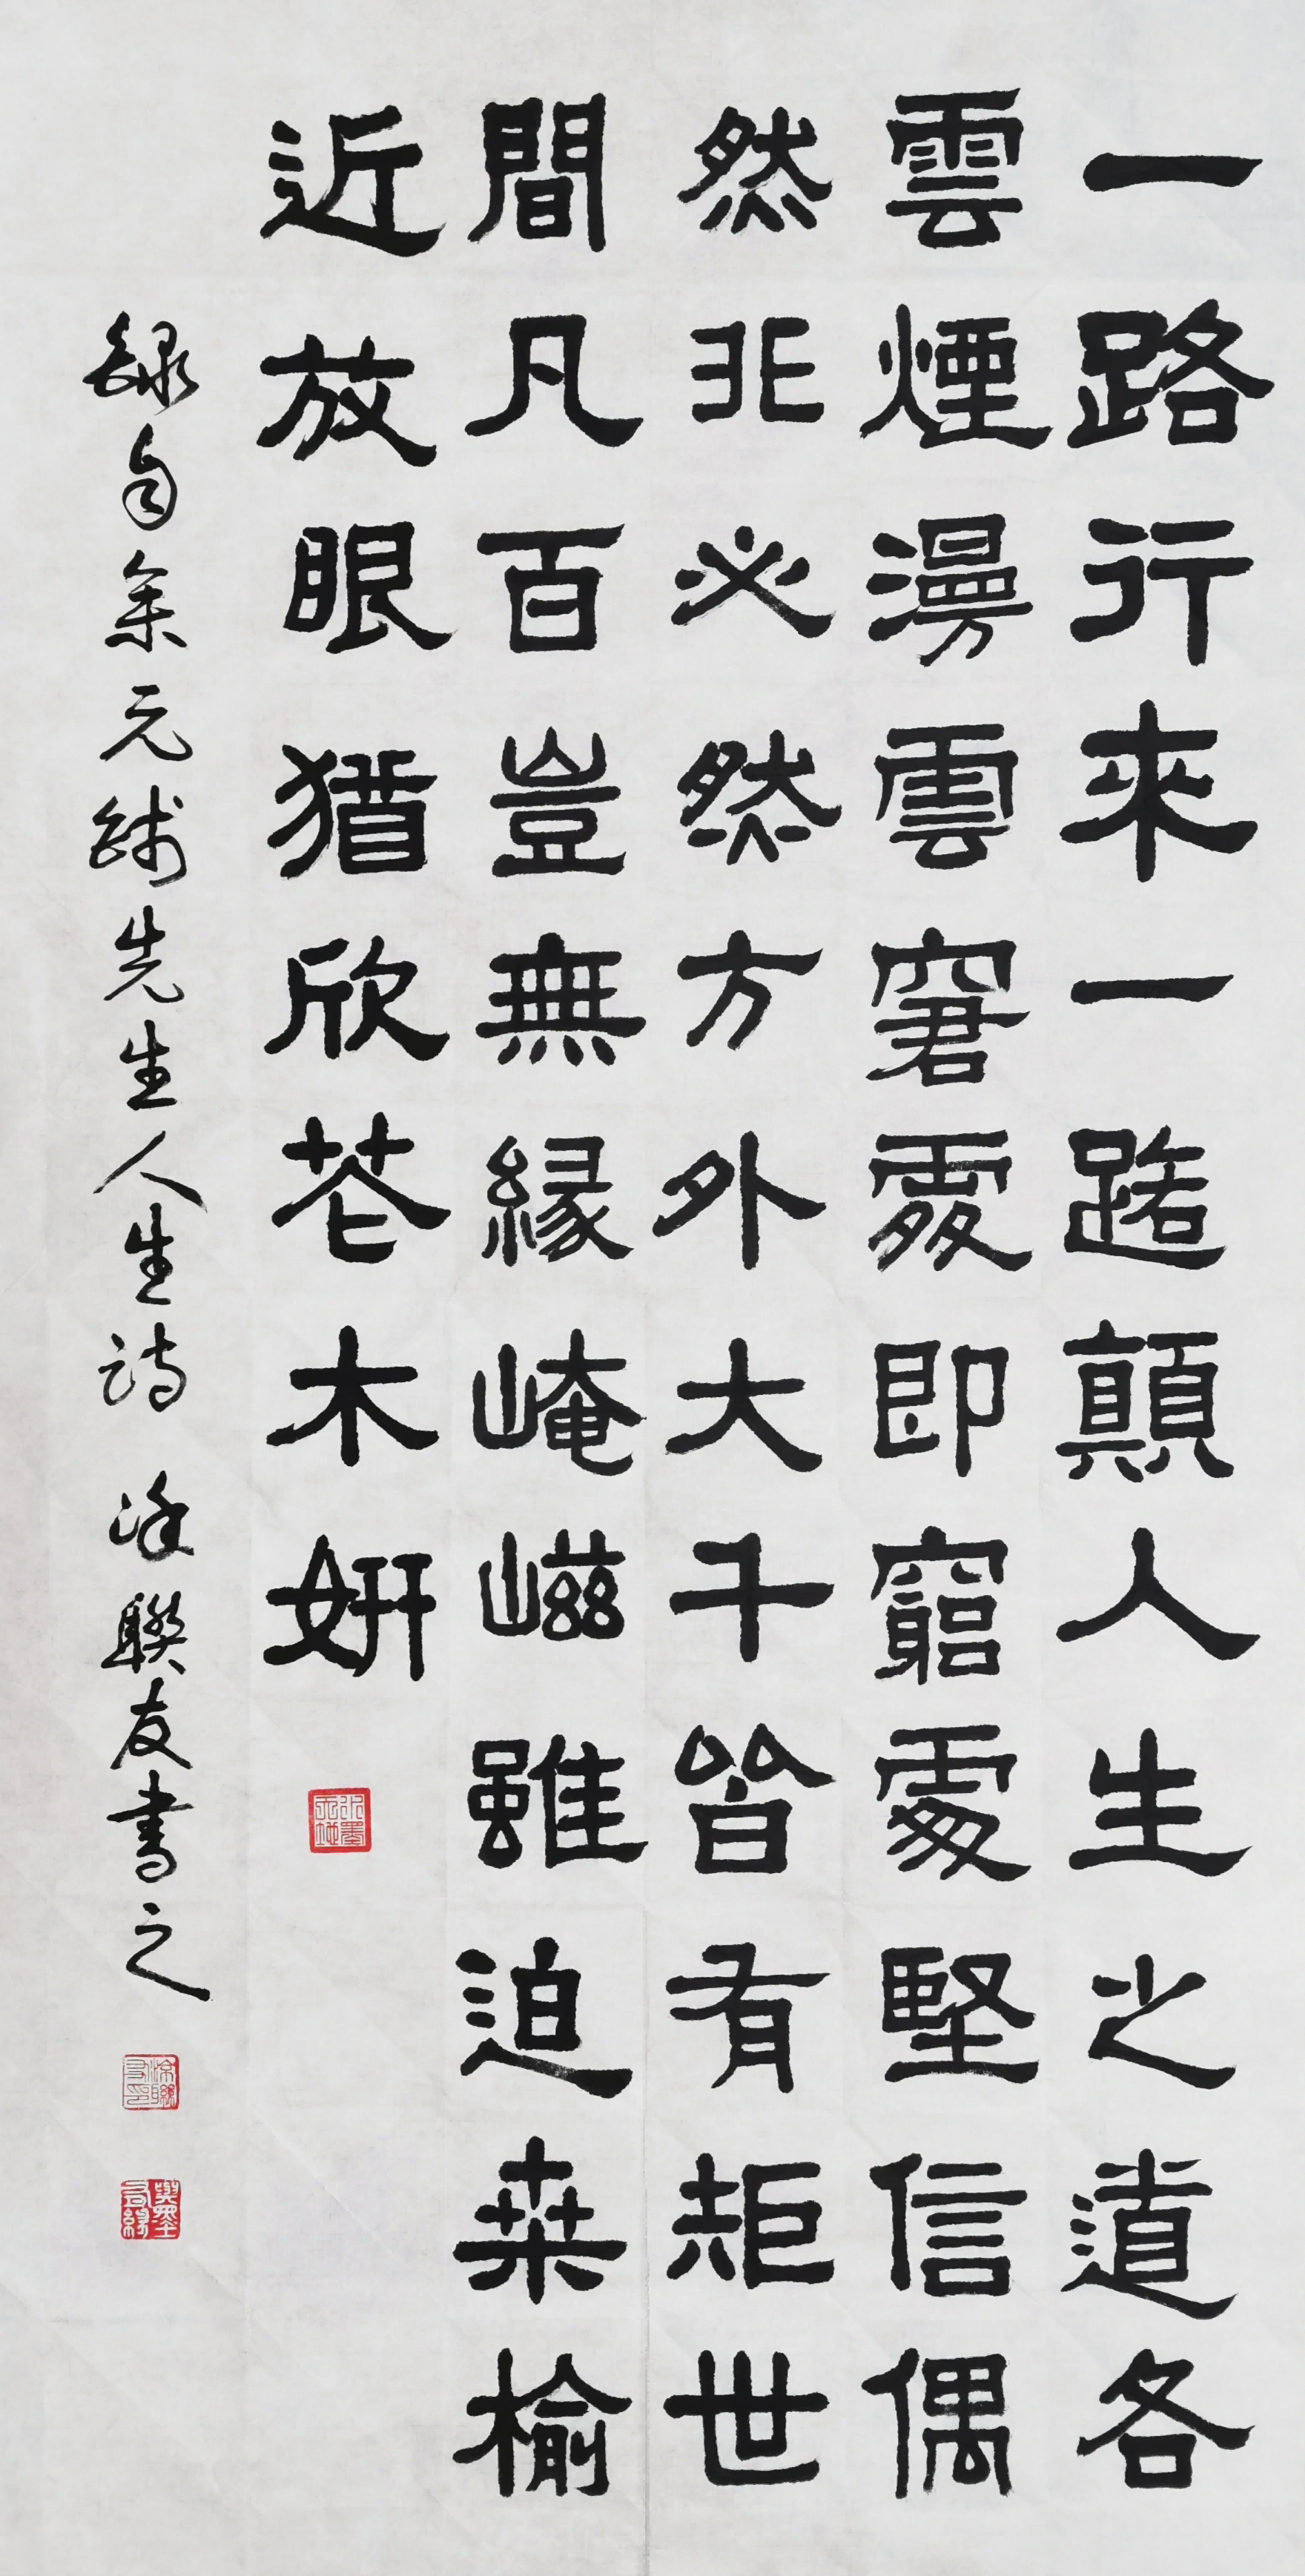 一路行來一路顛人生之道各
雲煙漫雲窘處即窮處堅信偶
然非必然方外大千皆有矩世
間凡百豈無緣崦嵫雖迫桑榆
近放眼猶欣花木妍
錄自余元錢先生人生詩 涂聯友書之